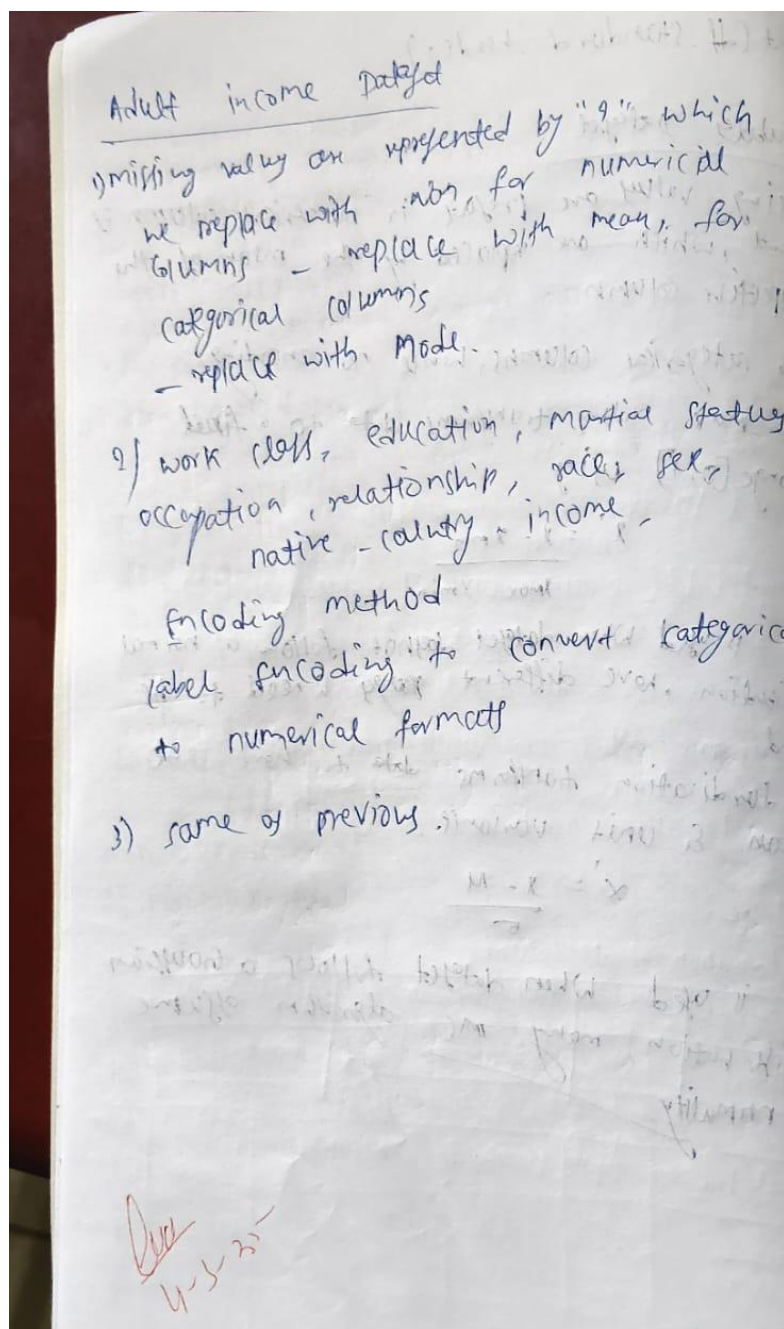 Adult income Dataset
1) missing value are represented by "?" which
we replace with nan for numericial
columns - replace with mean, for
categorical columns
- replace with Mode.
2) work class, education, martial status
occupation, relationship, race, sex,
native - country - income -
Encoding method
label Encoding to convert categorica
to numerical formats
3) same as previous.
4-3-25